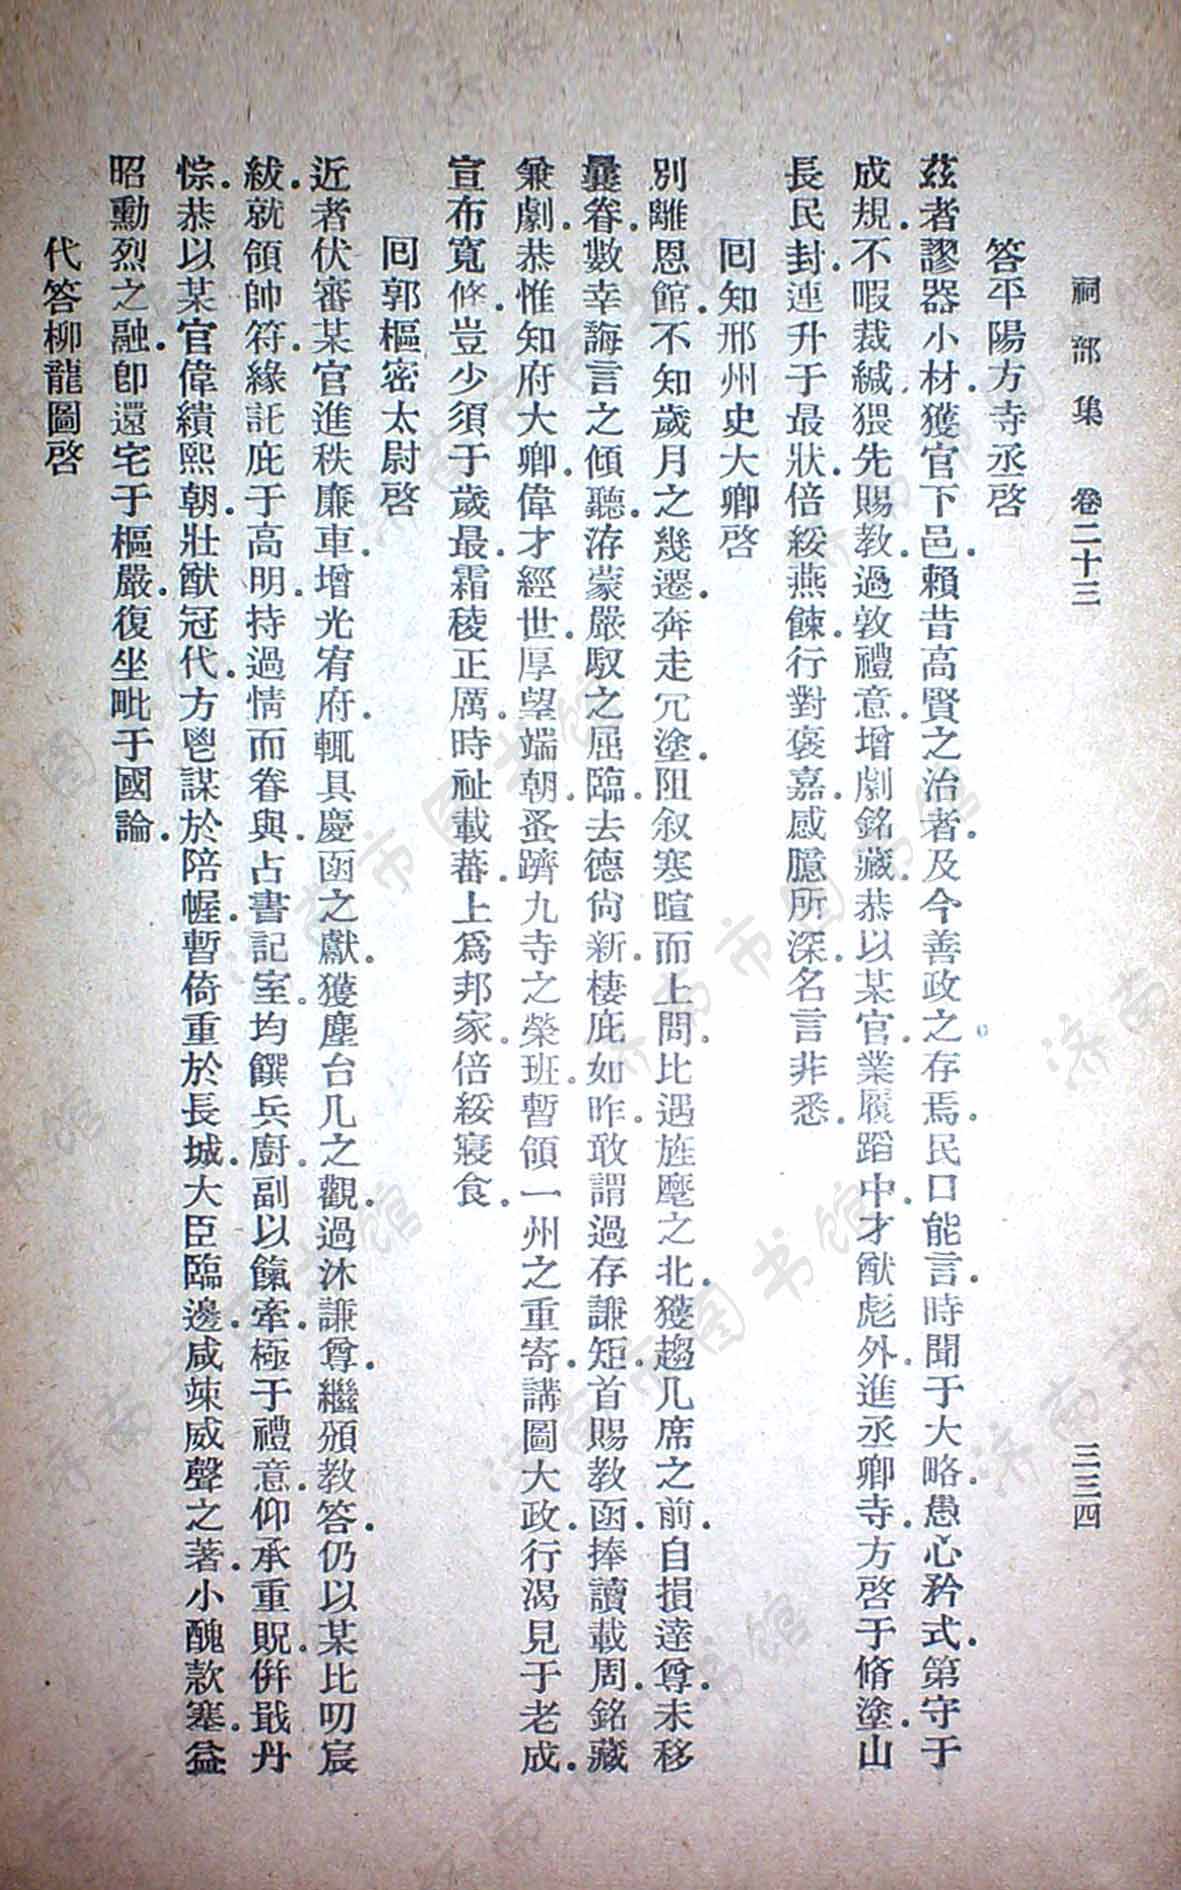 祠部集　卷二十三　三三四
答平陽方寺丞啓
茲者謬器小材．獲官下邑．賴昔高賢之治者．及今善政之存焉．民口能言．時聞于大略．愚心矜式．第守于
成規．不暇裁緘．猥先賜教．過敦禮意．增劇銘藏．恭以某官．業履蹈中．才猷彪外．進丞卿寺．方啓于脩塗．山
長民封．連升于最狀．倍綏燕餗．行對褒嘉．感臆所深．名言非悉．
回知邢州史大卿啓
別離恩館．不知歲月之幾遷．奔走冗塗．阻叙寒暄而上問．比遇旌麾之北．獲趨几席之前．自損達尊．未移
曩眷．數幸誨言之傾聽．洊蒙嚴馭之屈臨．去德尙新．棲庇如昨．敢謂過存謙矩．首賜教函．捧讀載周．銘藏
兼劇．恭惟知府大卿．偉才經世．厚望端朝．蚤躋九寺之榮班．暫領一州之重寄．講圖大政．行渴見于老成．
宣布寬條．豈少須于歲最．霜稜正厲．時祉載蕃．上爲邦家．倍綏寢食．
回郭樞密太尉啓
近者伏審某官進秩廉車．增光宥府．輒具慶函之獻．獲塵台几之觀．過沐謙尊．繼頒教答．仍以某比叨宸
紱．就領帥符．緣託庇于高明．持過情而眷與．占書記室．均饌兵廚．副以餼牽．極于禮意．仰承重貺．併戢丹
悰．恭以某官偉績熙朝．壯猷冠代．方鬯謀於陪幄．暫倚重於長城．大臣臨邊．咸竦威聲之著．小醜款塞．益
昭勳烈之融．卽還宅于樞嚴．復坐毗于國論．
代答柳龍圖啓